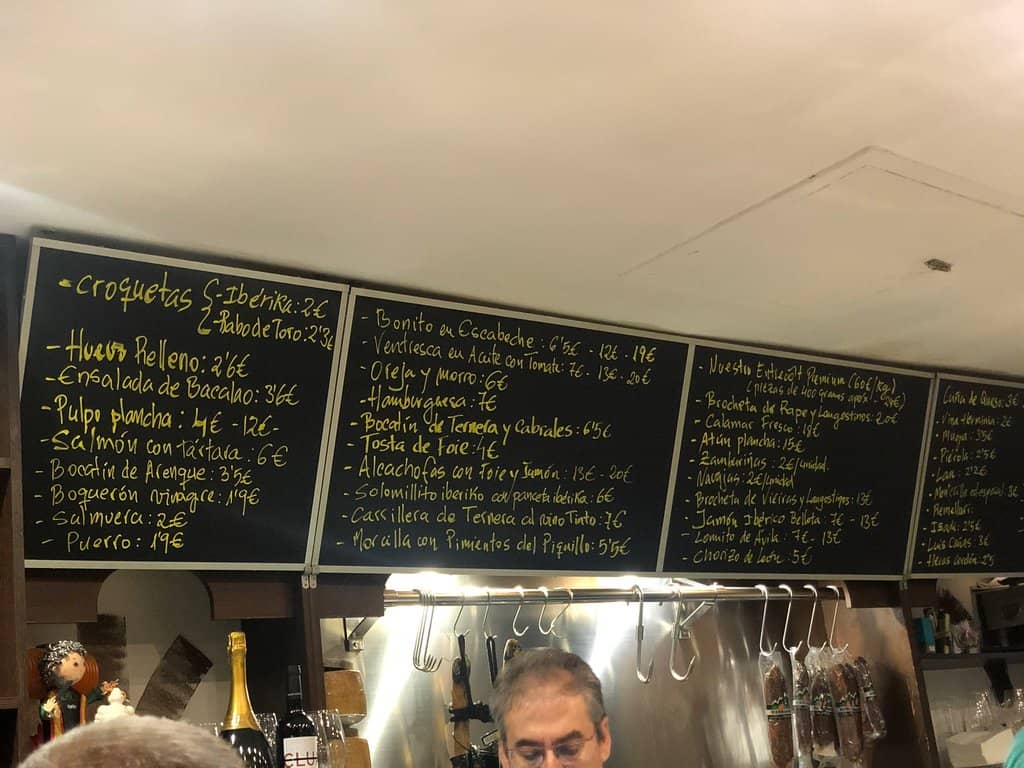 - Croquetas { - Ibérika: 2€
{ - Rabo de Toro: 2'3€
- Huevo Relleno: 2'6€
- Ensalada de Bacalao: 3'6€
- Pulpo plancha: 4€ - 12€ -
- Salmón con tártara: 6€
- Bocatin de Arenque: 3'5€
- Boquerón vinagre: 1'9€
- Salmuera: 2€
- Puerro: 1'9€
- Bonito en Escabeche: 6'5€ - 12€ - 19€
- Ventresca en Aceite con Tomate: 7€ - 13€ - 20€
- Oreja y morro: 6€
- Hamburguesa: 7€
- Bocatin de Ternera y Cabrales: 6'5€
- Tosta de Foie: 4€
- Alcachofas con Foie y Jamón: 13€ - 20€
- Solomillito iberiko con panceta ibérika: 6€
- Carrillera de Ternera al vino Tinto: 7€
- Morcilla con Pimientos del Piquillo: 5'5€
- Nuestro Entrecot Premium (60€/kg)
(piezas de 400 gramos aprox.
- Brocheta de Rape y Langostinos: 20€
- Calamar Fresco: 18€
- Atún plancha: 15€
- Zamburiñas: 2€/unidad.
- Navajas: 2€/unidad
- Brocheta de Vieiras y Langostinos: 13€
- Jamón Ibérico Bellota: 7€ - 13€
- Lomito de Ávila: 7€ - 13€
- Chorizo de León: 5€
2€
2€
- Muga: 3'5€
2'5€
- Lan: 2'2€
3€
- Remelluri:
- Izadi: 2'5€
- Luis Cañas: 3€
CLU